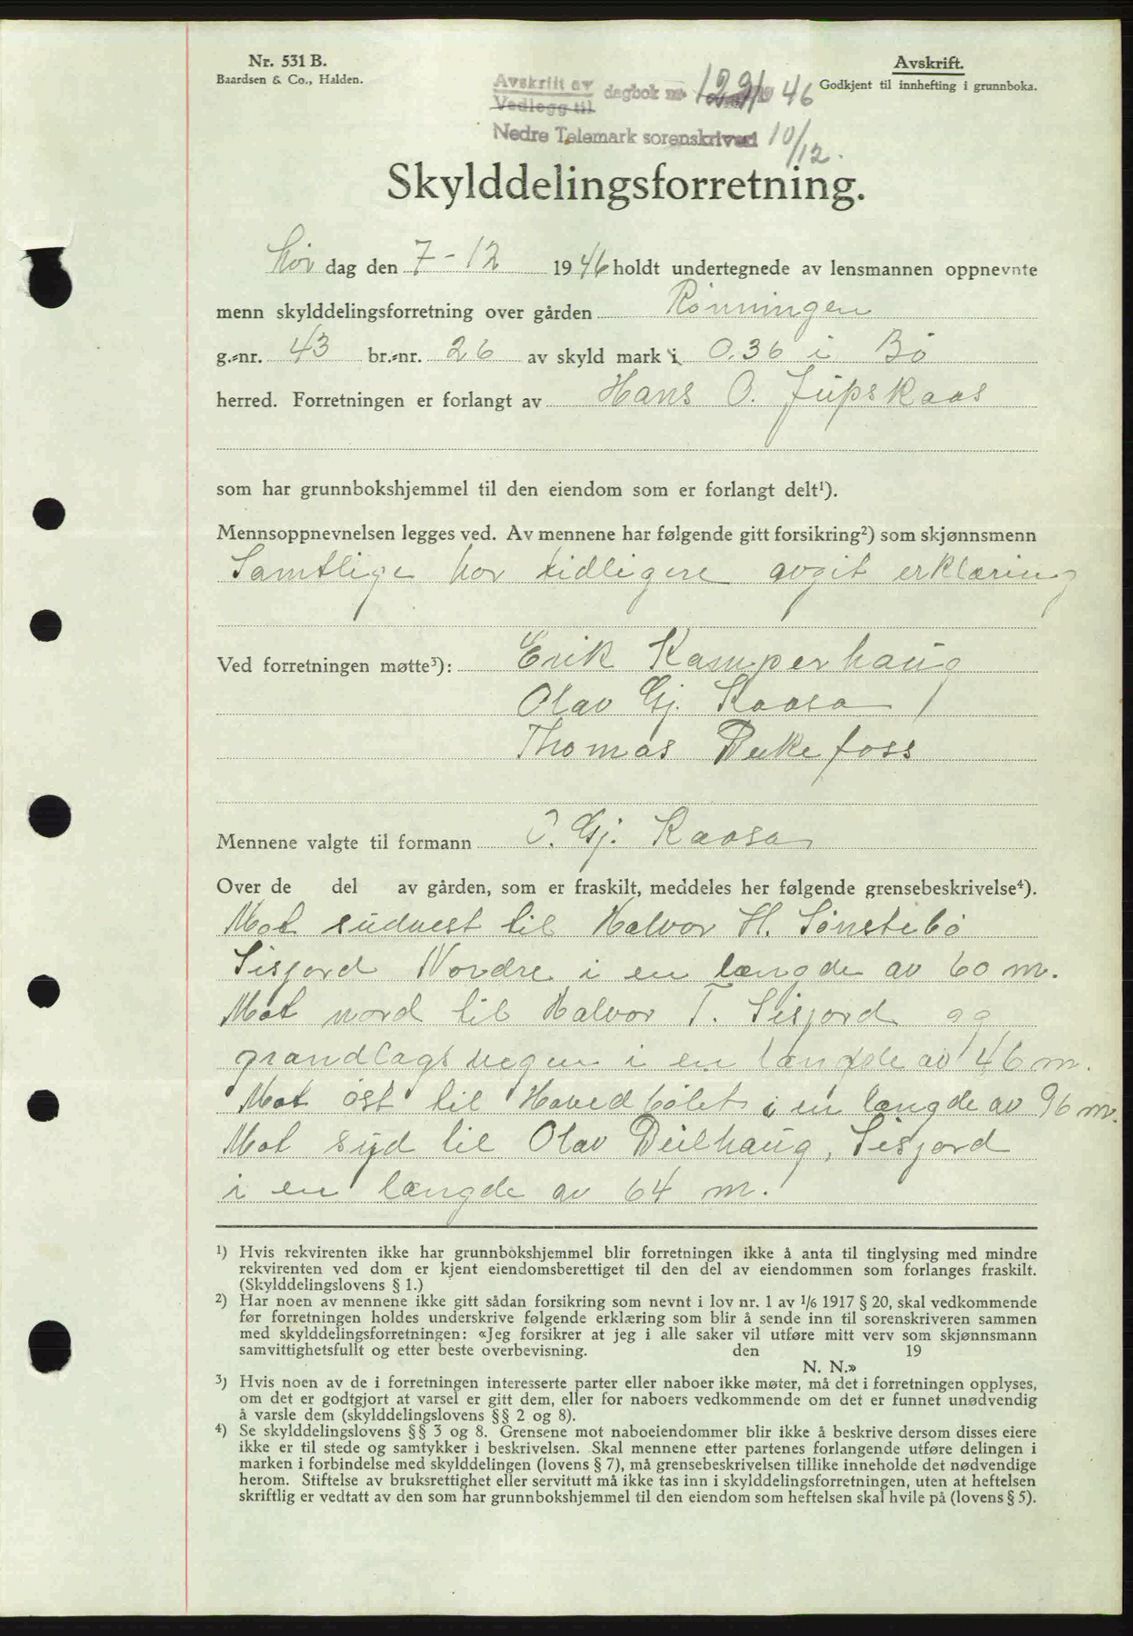 Nr. 531 B.
Baardsen & Co., Halden.
Avskrift.
Godkjent til innhefting i grunnboka.
Avskrift av
Vedlegg til
dagbok nr. 46
Nedre Telemark sorenskriveri 10/12.
Skylddelingsforretning.
Lør dag den 7-12 1946 holdt undertegnede av lensmannen oppnevnte
menn skylddelingsforretning over gården Rønningen
g.-nr. 43 br.-nr. 26 av skyld mark 0.36 i Bø
herred. Forretningen er forlangt av Hans O. Jupskaas
som har grunnbokshjemmel til den eiendom som er forlangt delt¹).
Mennsoppnevnelsen legges ved. Av mennene har følgende gitt forsikring²) som skjønnsmenn
Samtlige har tidligere avgit erklæring
Ved forretningen møtte³): Erik Kamperhaug
Olav Gj. Kaasa
Thomas Dekefoss
Mennene valgte til formann O. Gj. Kaasa
Over de del av gården, som er fraskilt, meddeles her følgende grensebeskrivelse⁴).
Mot sudvest til Halvor H. Sønstebø
Sisjord Nordre i en længde av 60 m.
Mot nord til Halvor T. Sisjord og
grandlagsvegen i en længde av 46 m.
Mot øst til Hovedbølet i en længde av 96 m.
Mot syd til Olav Deilhaug, Sisjord
i en længde av 64 m.
¹) Hvis rekvirenten ikke har grunnbokshjemmel blir forretningen ikke å anta til tinglysing med mindre
rekvirenten ved dom er kjent eiendomsberettiget til den del av eiendommen som forlanges fraskilt.
(Skylddelingslovens § 1.)
²) Har noen av mennene ikke gitt sådan forsikring som nevnt i lov nr. 1 av 1/6 1917 § 20, skal vedkommende
før forretningen holdes underskrive følgende erklæring som blir å sende inn til sorenskriveren sammen
med skylddelingsforretningen: «Jeg forsikrer at jeg i alle saker vil utføre mitt verv som skjønnsmann
samvittighetsfullt og etter beste overbevisning. den 19
N. N.»
³) Hvis noen av de i forretningen interesserte parter eller naboer ikke møter, må det i forretningen opplyses,
om det er godtgjort at varsel er gitt dem, eller for naboers vedkommende om det er funnet unødvendig
å varsle dem (skylddelingslovens §§ 2 og 8).
⁴) Se skylddelingslovens §§ 3 og 8. Grensene mot naboeiendommer blir ikke å beskrive dersom disses eiere
ikke er til stede og samtykker i beskrivelsen. Skal mennene etter partenes forlangende utføre delingen i
marken i forbindelse med skylddelingen (lovens § 7), må grensebeskrivelsen tillike inneholde det nødvendige
herom. Stiftelse av bruksrettighet eller servitutt må ikke tas inn i skylddelingsforretningen, uten at heftelsen
skriftlig er vedtatt av den som har grunnbokshjemmel til den eiendom som heftelsen skal hvile på (lovens § 5).